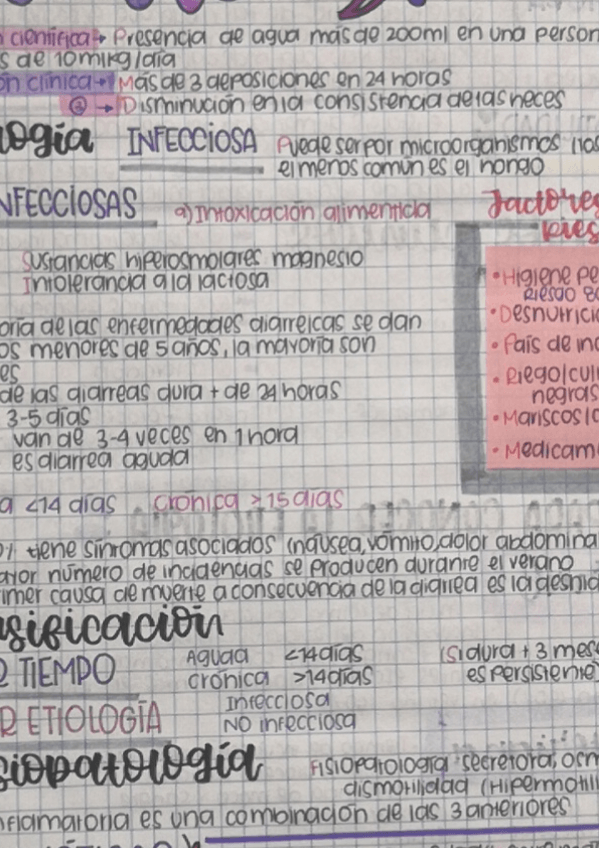 científica → Presencia de agua más de 200ml en una person
s de 10mlkg/día
ón clínica → Más de 3 deposiciones en 24 horas
② → Disminución en la consistencia de las heces
ogía INFECCIOSA Puede ser por microorganismos (los
el menos común es el hongo
NFECCIOSAS a) Intoxicación alimenticia
Factores
Ries
Sustancias hiperosmolares magnesio
Intolerancia a la lactosa
• Higiene pe
Riesgo
• Desnutrici
• País de in
• Riego/cul
negras
• Mariscos
• Medicam
oría de las enfermedades diarreicas se dan
os menores de 5 años, la mayoría son
es
de las diarreas dura + de 24 horas
3-5 días
van de 3-4 veces en 1 hora
es diarrea aguda
a <14 días crónica >15 días
tiene síntomas asociados (náusea, vómito, dolor abdomina
ayor número de incidencias se producen durante el verano
imer causa de muerte a consecuencia de la diarrea es la deshid
sificación
TIEMPO Aguda <14días (si dura + 3 mes
crónica >14días es persistente)
R ETIOLOGÍA Infecciosa
NO infecciosa
siopatología Fisiopatología secretora, osm
dismotilidad (Hipermotili
nflamatoria es una combinación de las 3 anteriores